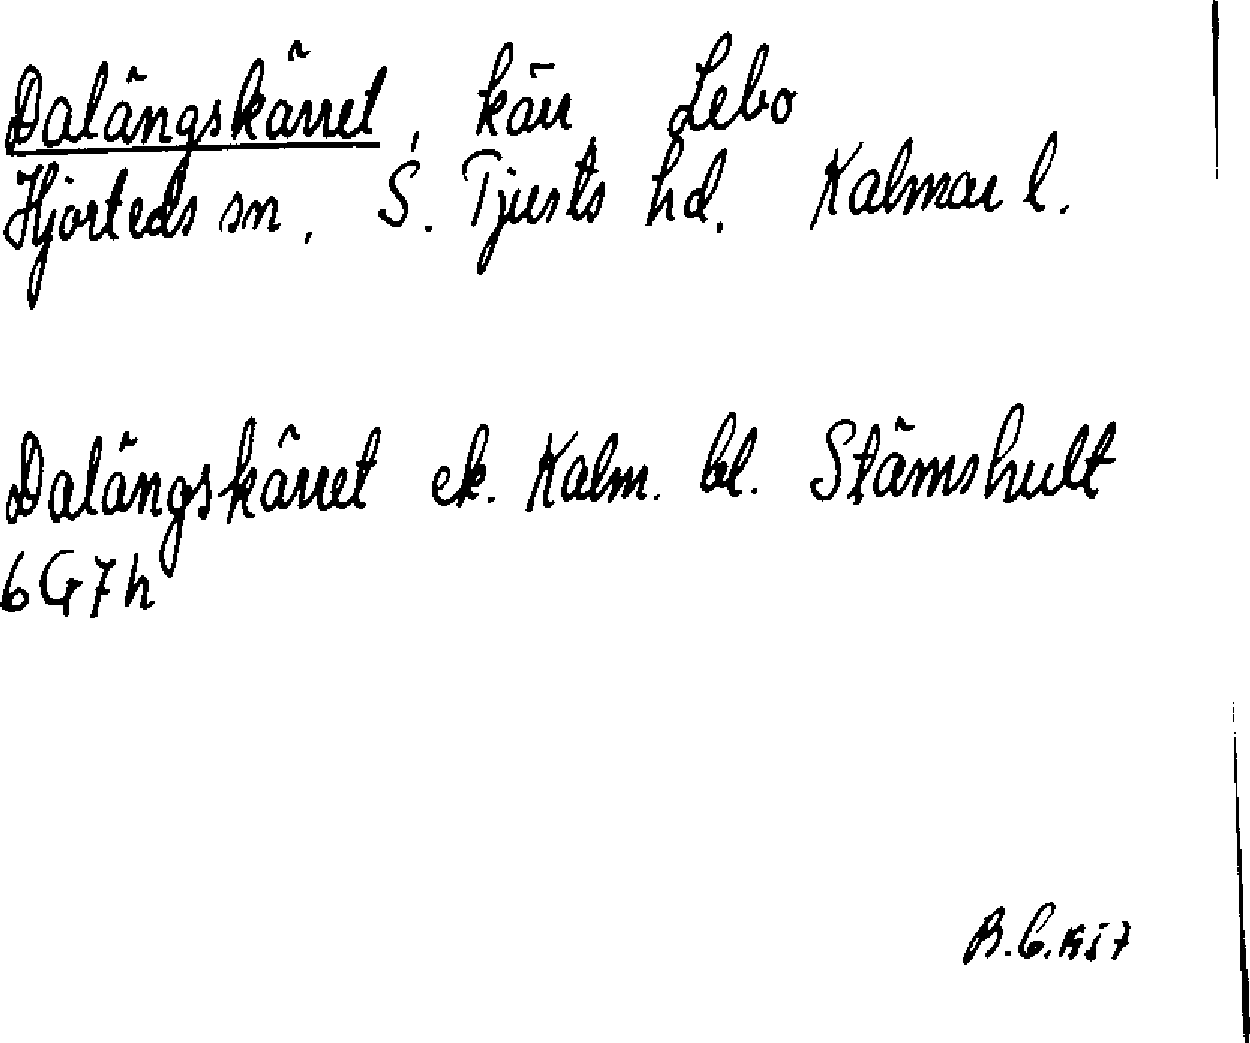 Dalängskärret, kärr Lebo
Hjorteds sn. S. Tjusts hd. Kalmar l.
Dalängskärret ek. Kalm. bl. Stämshult
6G7h